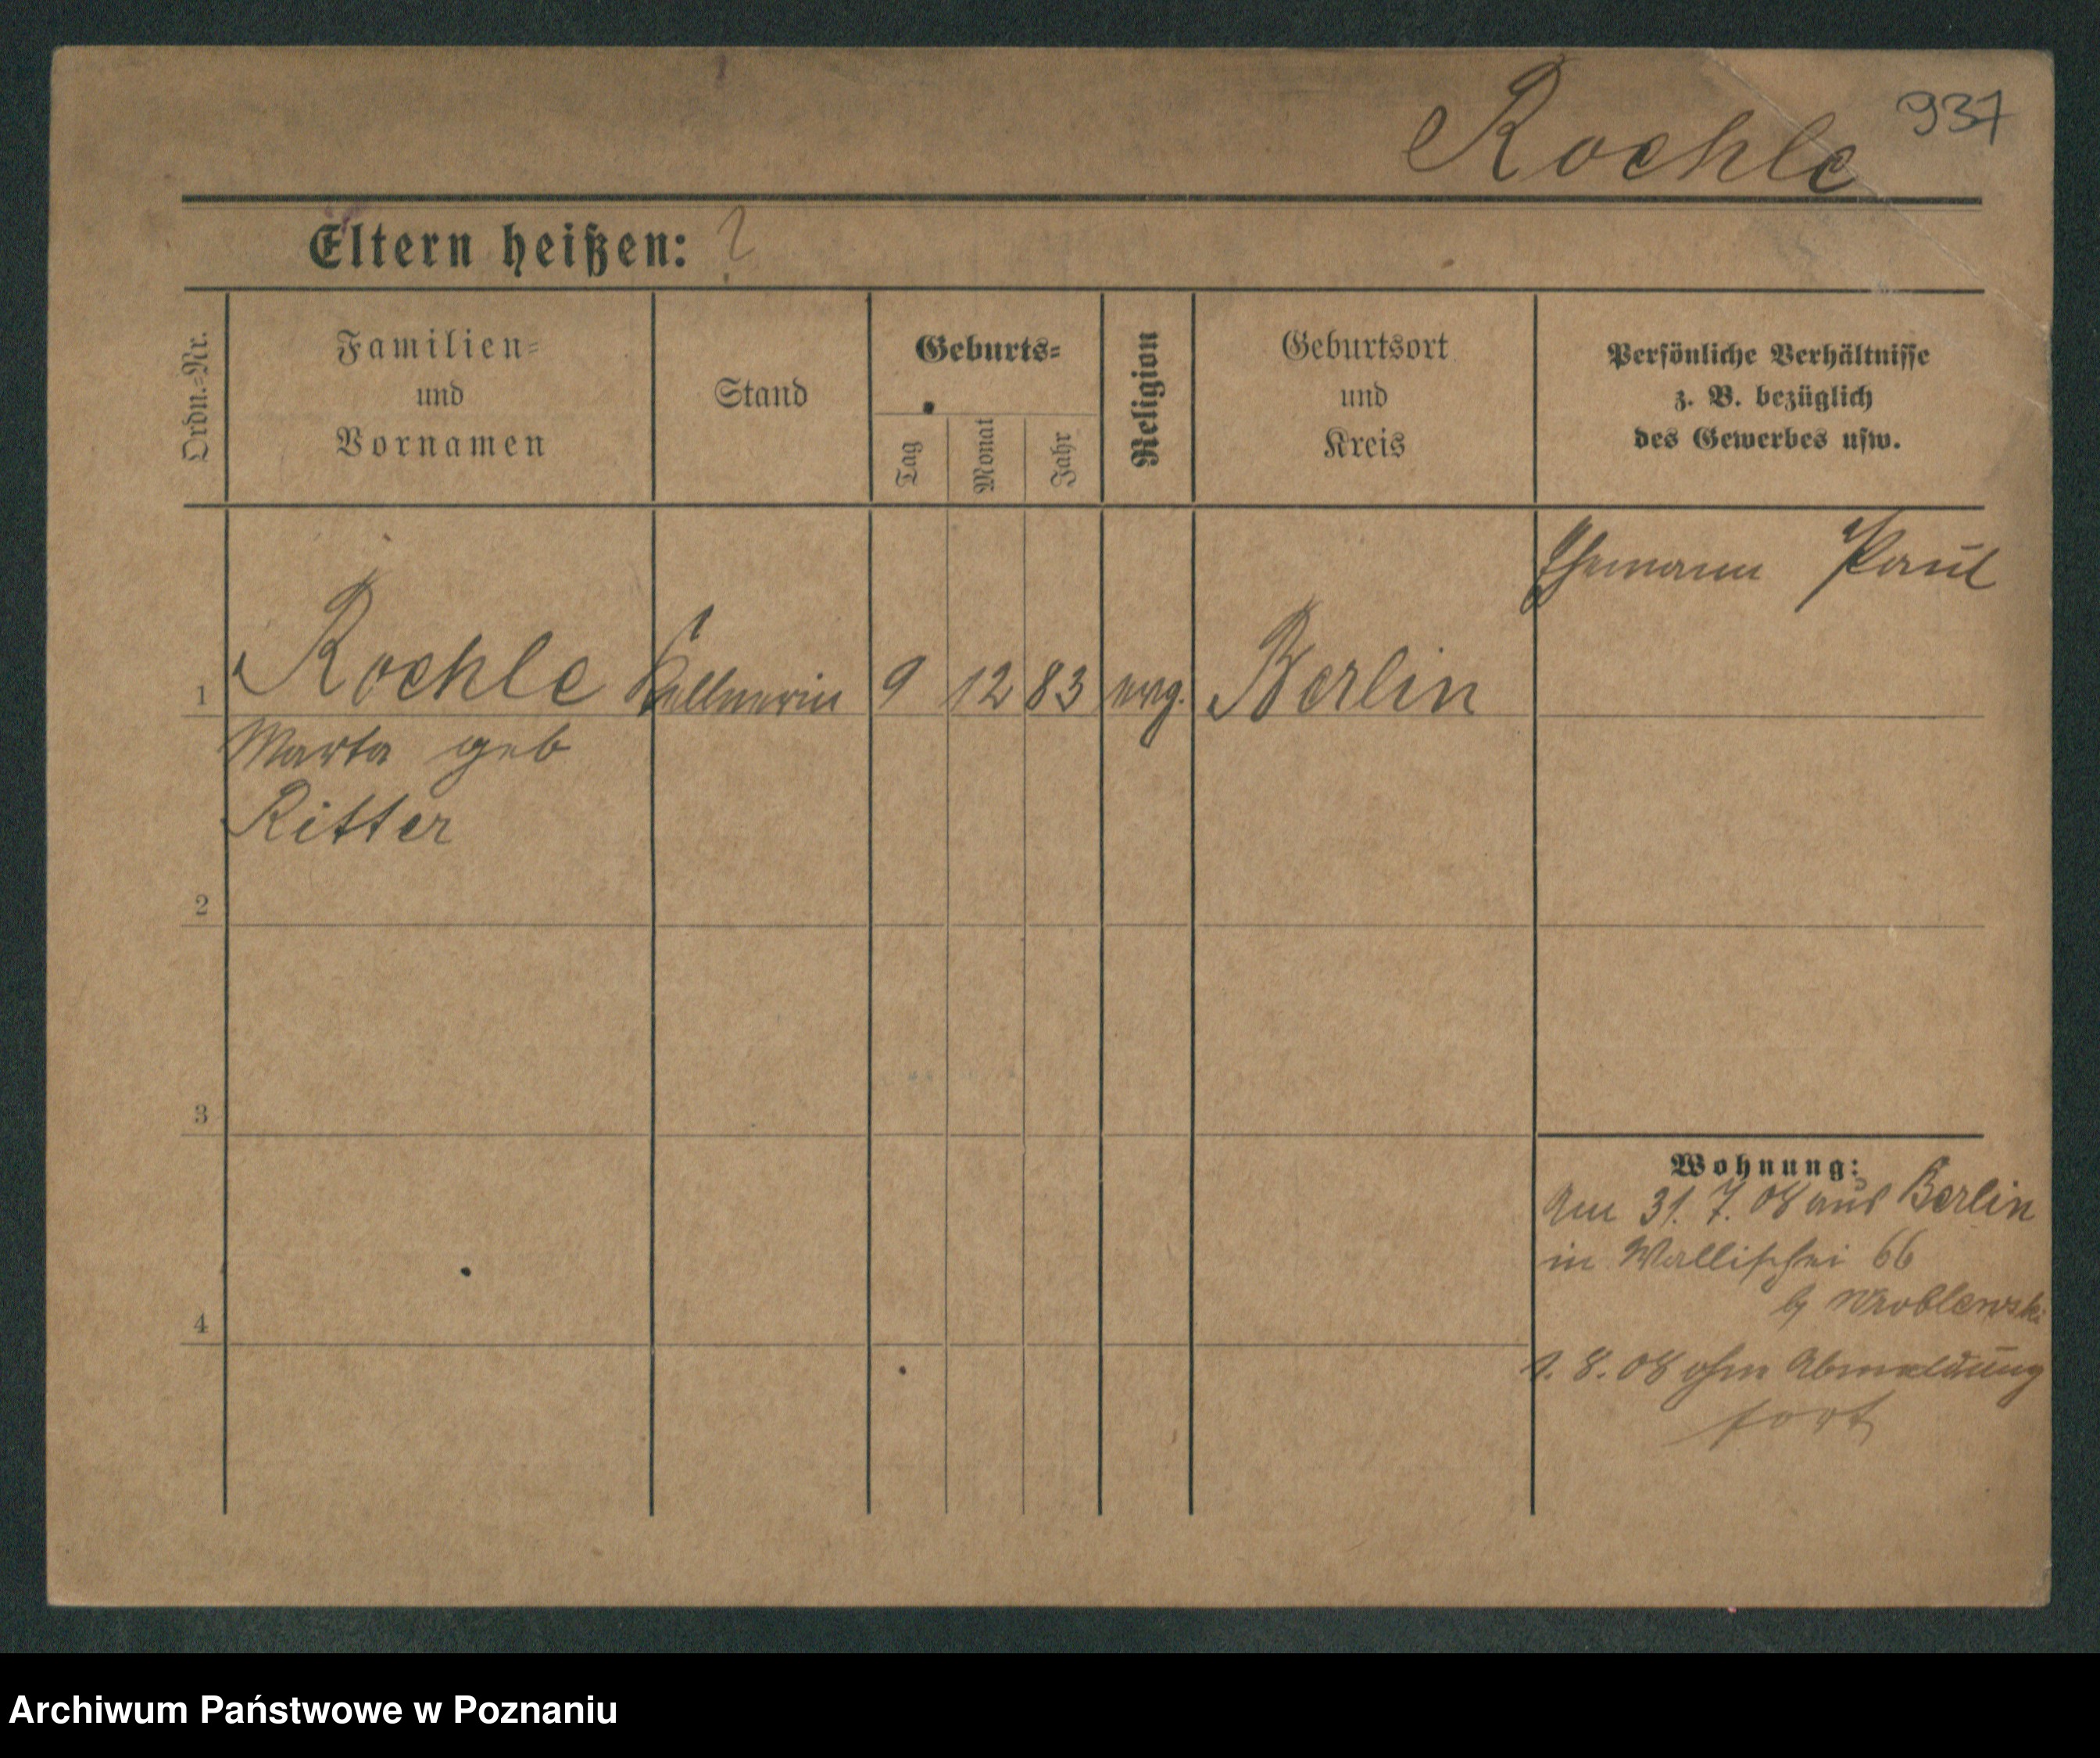 937
Roehle
Eltern heißen: ?
Ordn.=Nr.
Familien=
und
Vornamen
Stand
Geburts=
Tag
Monat
Jahr
Religion
Geburtsort
und
Kreis
Persönliche Verhältnisse
z. B. bezüglich
des Gewerbes usw.
Ehemann Paul
1 Roehle Kellnerin 9 12 83 evg. Berlin
Marta geb
Ritter
2
3
4
Wohnung:
Am 31. 7. 08 aus Berlin
in Wallischei 66
b/ Wroblewski
1. 8. 08 ohne Abmeldung
fort
Archiwum Państwowe w Poznaniu